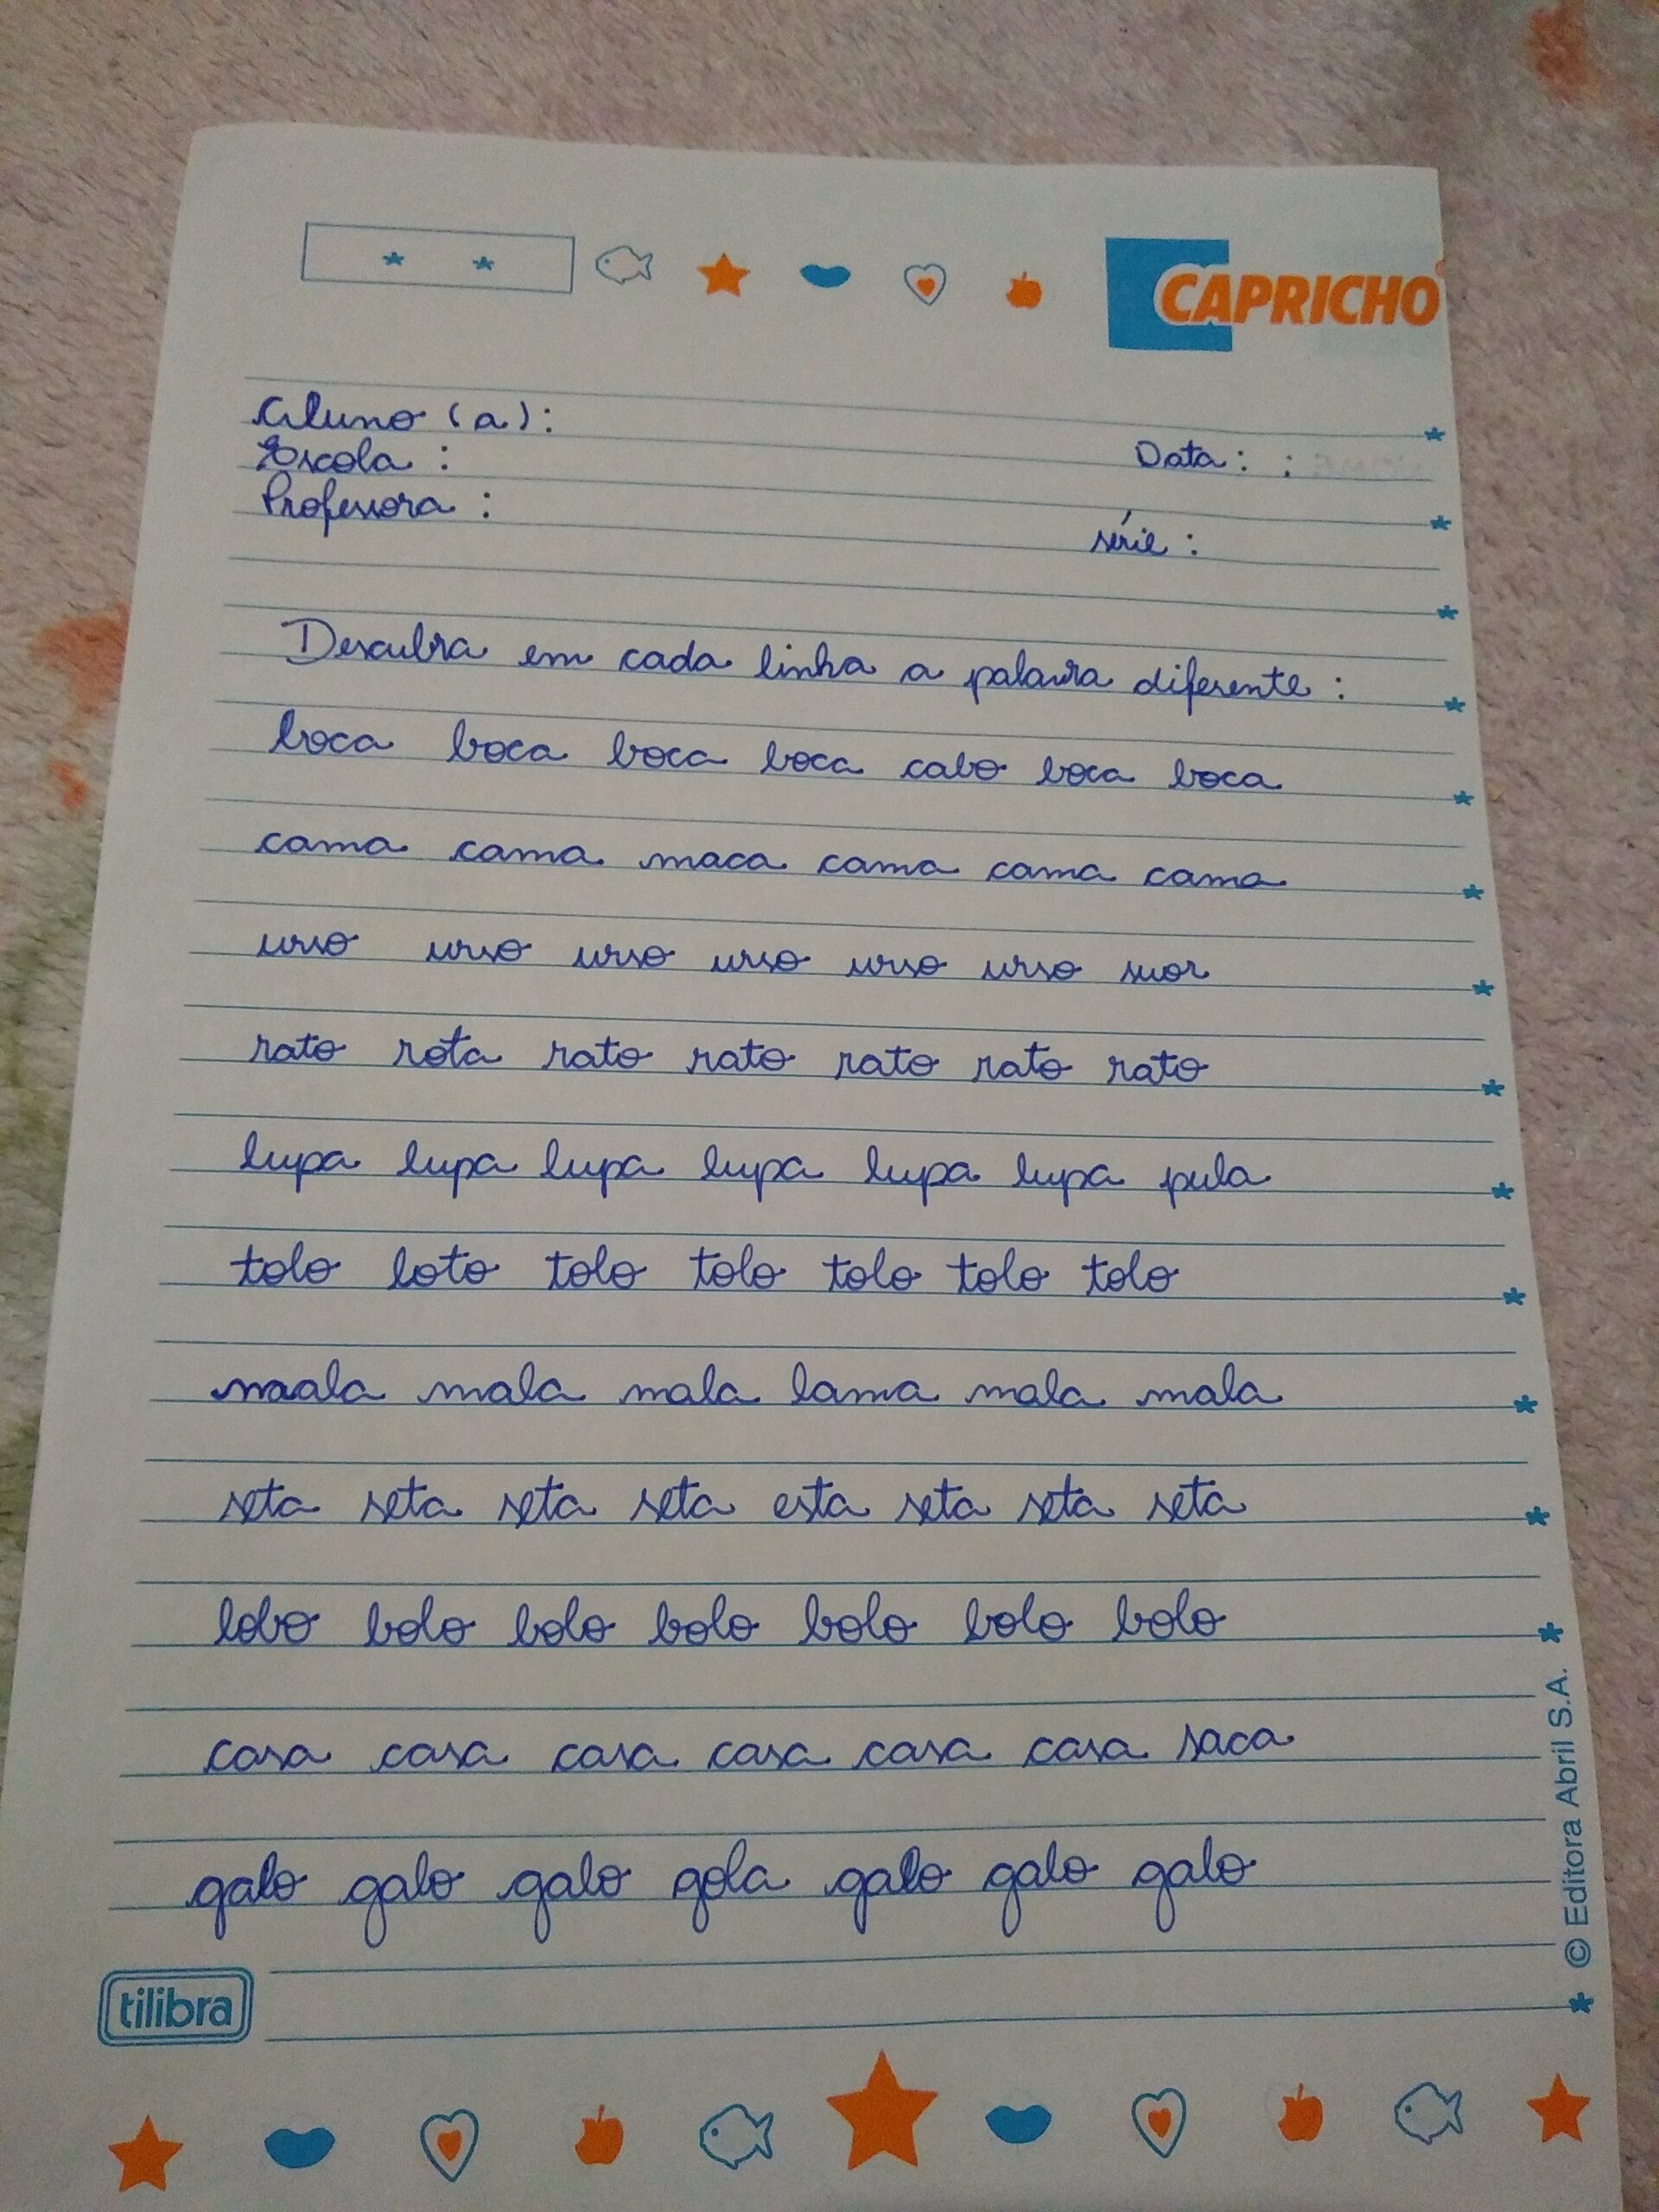 CAPRICHO
Aluno (a):
Escola :
Data : :
Professora :
série :
Descubra em cada linha a palavra diferente :
boca boca boca boca cabo boca boca
cama cama maca cama cama cama
urso urso urso urso urso urso suor
rato rota rato rato rato rato rato
lupa lupa lupa lupa lupa lupa pula
tolo loto tolo tolo tolo tolo tolo
maala mala mala lama mala mala
seta seta seta seta esta seta seta seta
lobo bolo bolo bolo bolo bolo bolo
casa casa casa casa casa casa saca
galo galo galo gola galo galo galo
tilibra
© Editora Abril S.A.